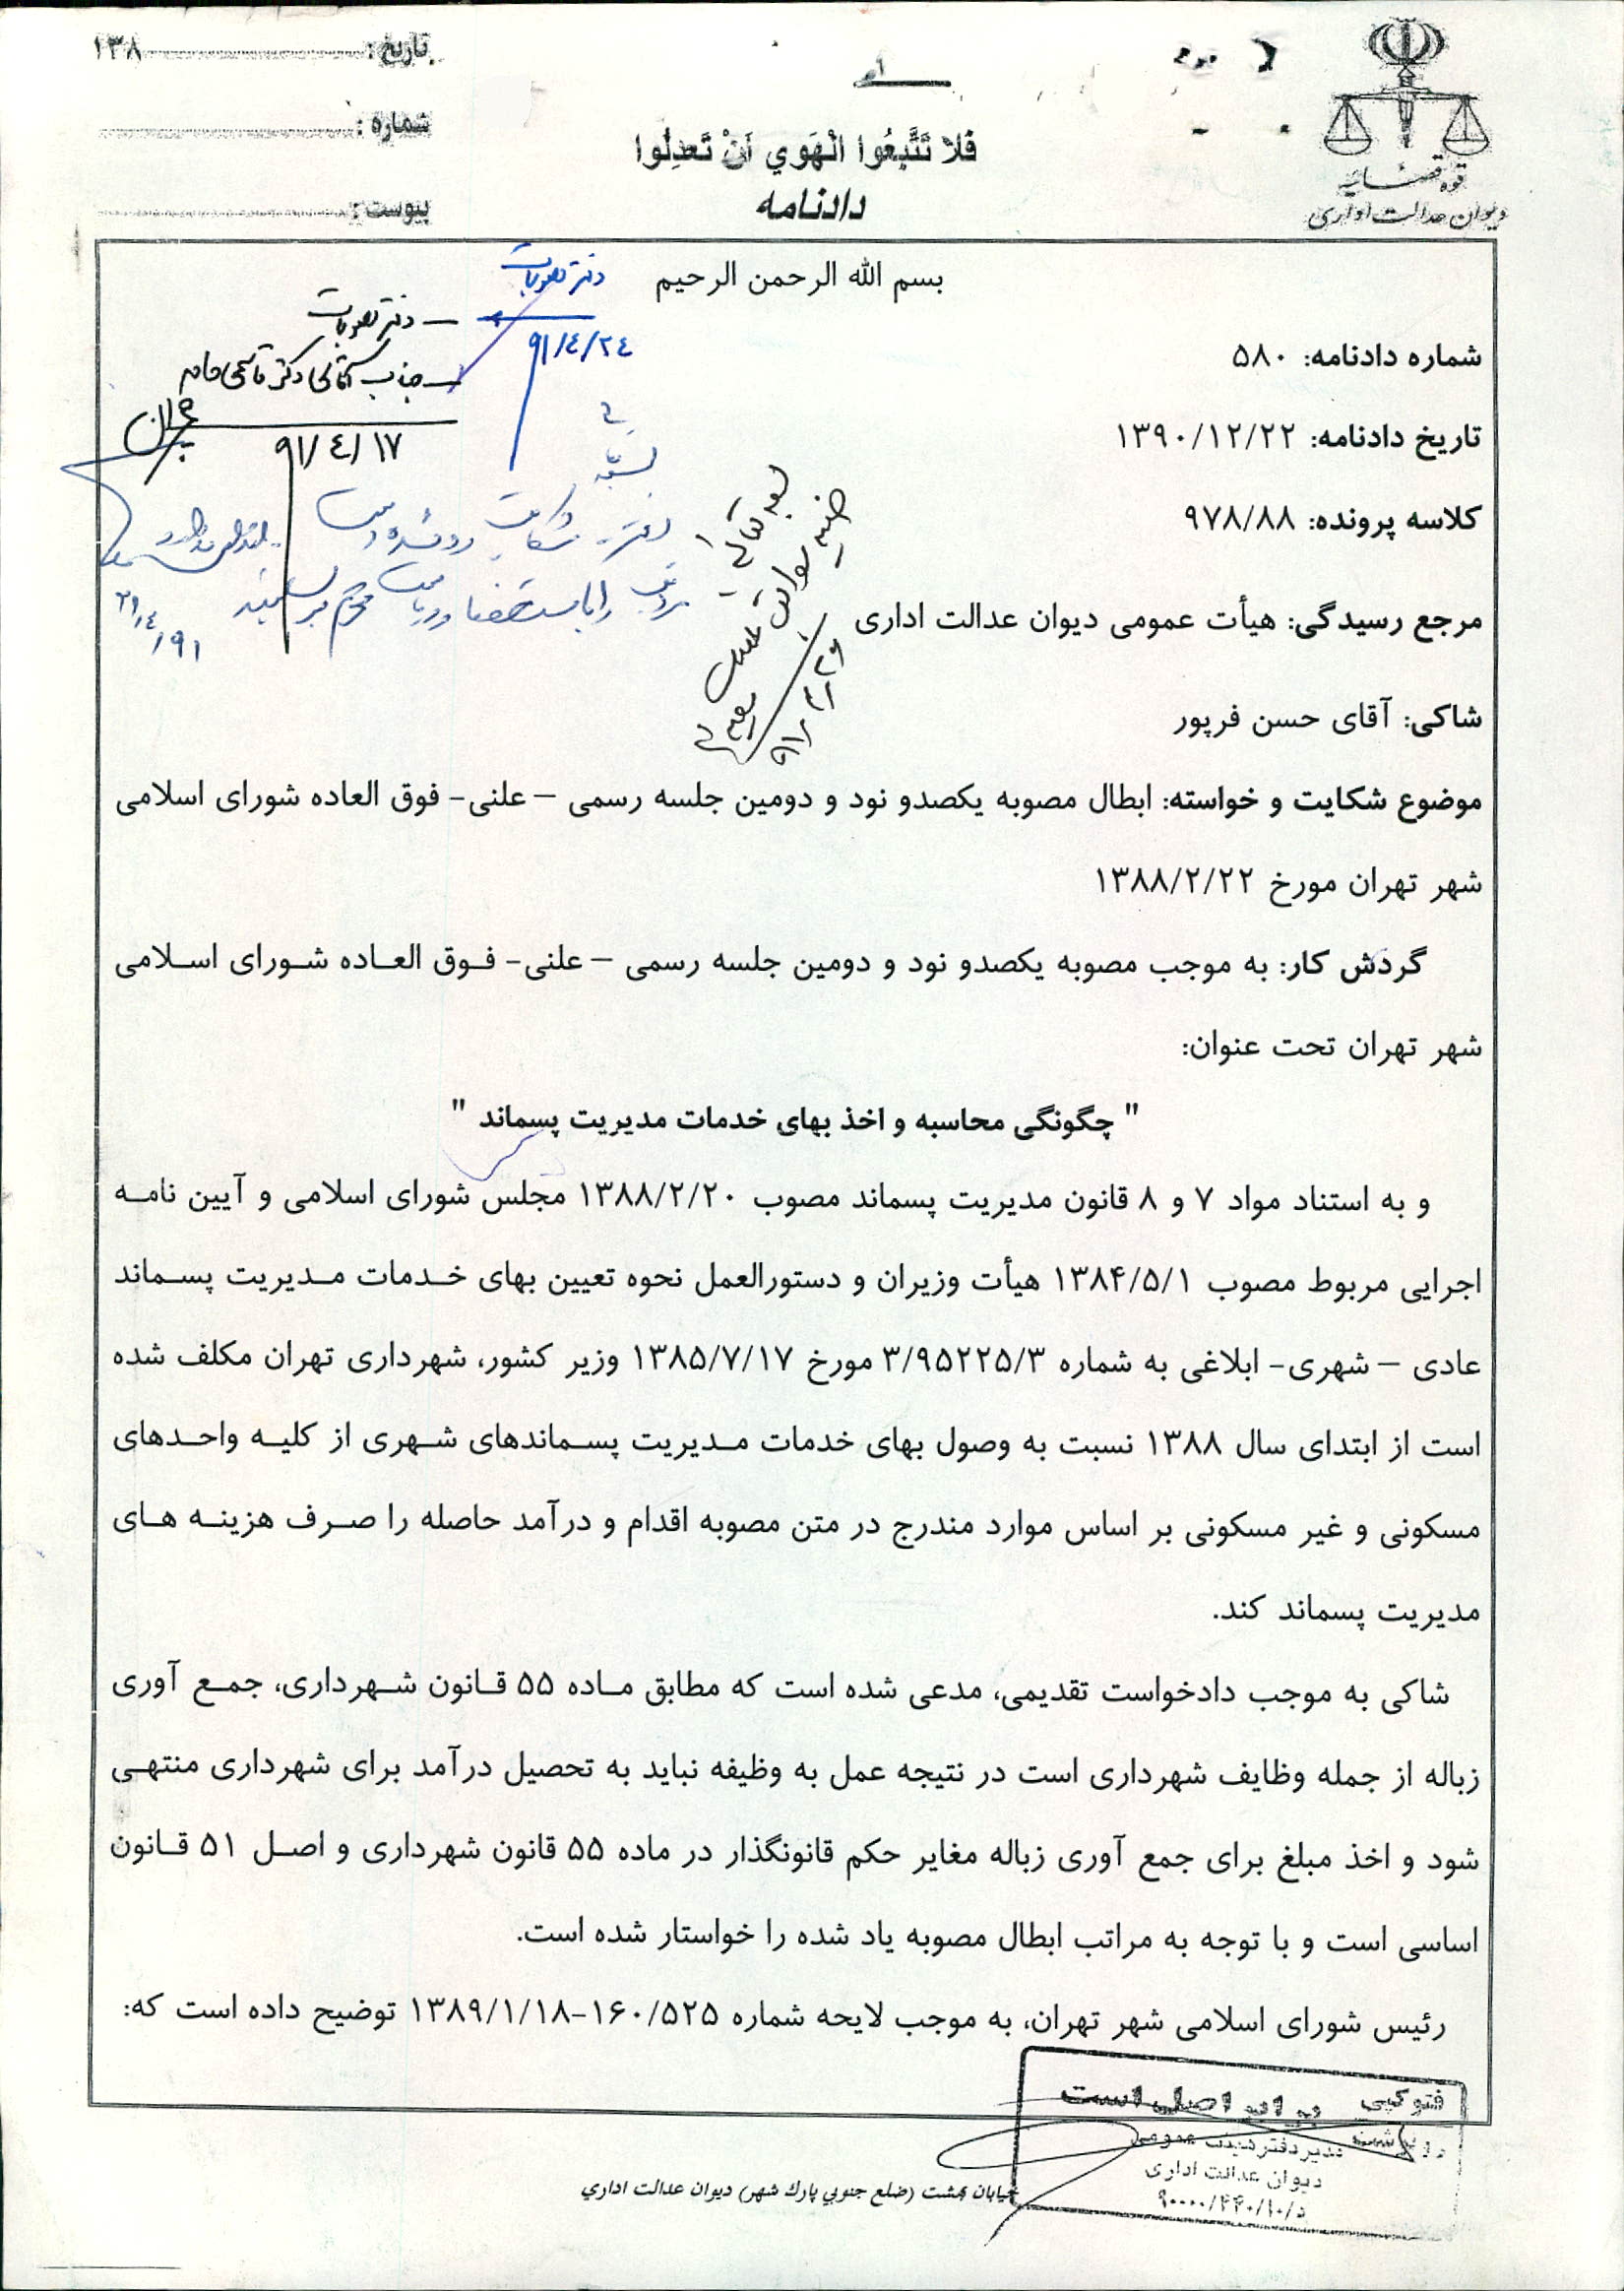 تاریخ: ۱۳۸
شماره:
پیوست:
قوه قضائیه
دیوان عدالت اداری
فَلا تَتَّبِعُوا الْهَوي اَنْ تَعدِلُوا
دادنامه
بسم الله الرحمن الرحیم
دفتر مصوبات
۹۱/٤/۲٤
– دفتر مصوبات
– جناب آقای دکتر قاسمی حامد
۹۱/٤/۱۷
۹۱/٤/۲۱
شماره دادنامه: ۵۸۰
تاریخ دادنامه: ۱۳۹۰/۱۲/۲۲
کلاسه پرونده: ۹۷۸/۸۸
مرجع رسیدگی: هیأت عمومی دیوان عدالت اداری
شاکی: آقای حسن فرپور
موضوع شکایت و خواسته: ابطال مصوبه یکصدو نود و دومین جلسه رسمی – علنی- فوق العاده شورای اسلامی
شهر تهران مورخ ۱۳۸۸/۲/۲۲
گردش کار: به موجب مصوبه یکصدو نود و دومین جلسه رسمی – علنی- فوق العاده شورای اسلامی
شهر تهران تحت عنوان:
" چگونگی محاسبه و اخذ بهای خدمات مدیریت پسماند "
و به استناد مواد ۷ و ۸ قانون مدیریت پسماند مصوب ۱۳۸۸/۲/۲۰ مجلس شورای اسلامی و آیین نامه
اجرایی مربوط مصوب ۱۳۸۴/۵/۱ هیأت وزیران و دستورالعمل نحوه تعیین بهای خدمات مدیریت پسماند
عادی – شهری- ابلاغی به شماره ۳/۹۵۲۲۵/۳ مورخ ۱۳۸۵/۷/۱۷ وزیر کشور، شهرداری تهران مکلف شده
است از ابتدای سال ۱۳۸۸ نسبت به وصول بهای خدمات مدیریت پسماندهای شهری از کلیه واحدهای
مسکونی و غیر مسکونی بر اساس موارد مندرج در متن مصوبه اقدام و درآمد حاصله را صرف هزینه های
مدیریت پسماند کند.
شاکی به موجب دادخواست تقدیمی، مدعی شده است که مطابق ماده ۵۵ قانون شهرداری، جمع آوری
زباله از جمله وظایف شهرداری است در نتیجه عمل به وظیفه نباید به تحصیل درآمد برای شهرداری منتهی
شود و اخذ مبلغ برای جمع آوری زباله مغایر حکم قانونگذار در ماده ۵۵ قانون شهرداری و اصل ۵۱ قانون
اساسی است و با توجه به مراتب ابطال مصوبه یاد شده را خواستار شده است.
رئیس شورای اسلامی شهر تهران، به موجب لایحه شماره ۱۶۰/۵۲۵-۱۳۸۹/۱/۱۸ توضیح داده است که:
فتوکپی برابر اصل است
مدیر دفتر هیئت عمومی
دیوان عدالت اداری
خیابان بهشت (ضلع جنوبي پارك شهر) دیوان عدالت اداري